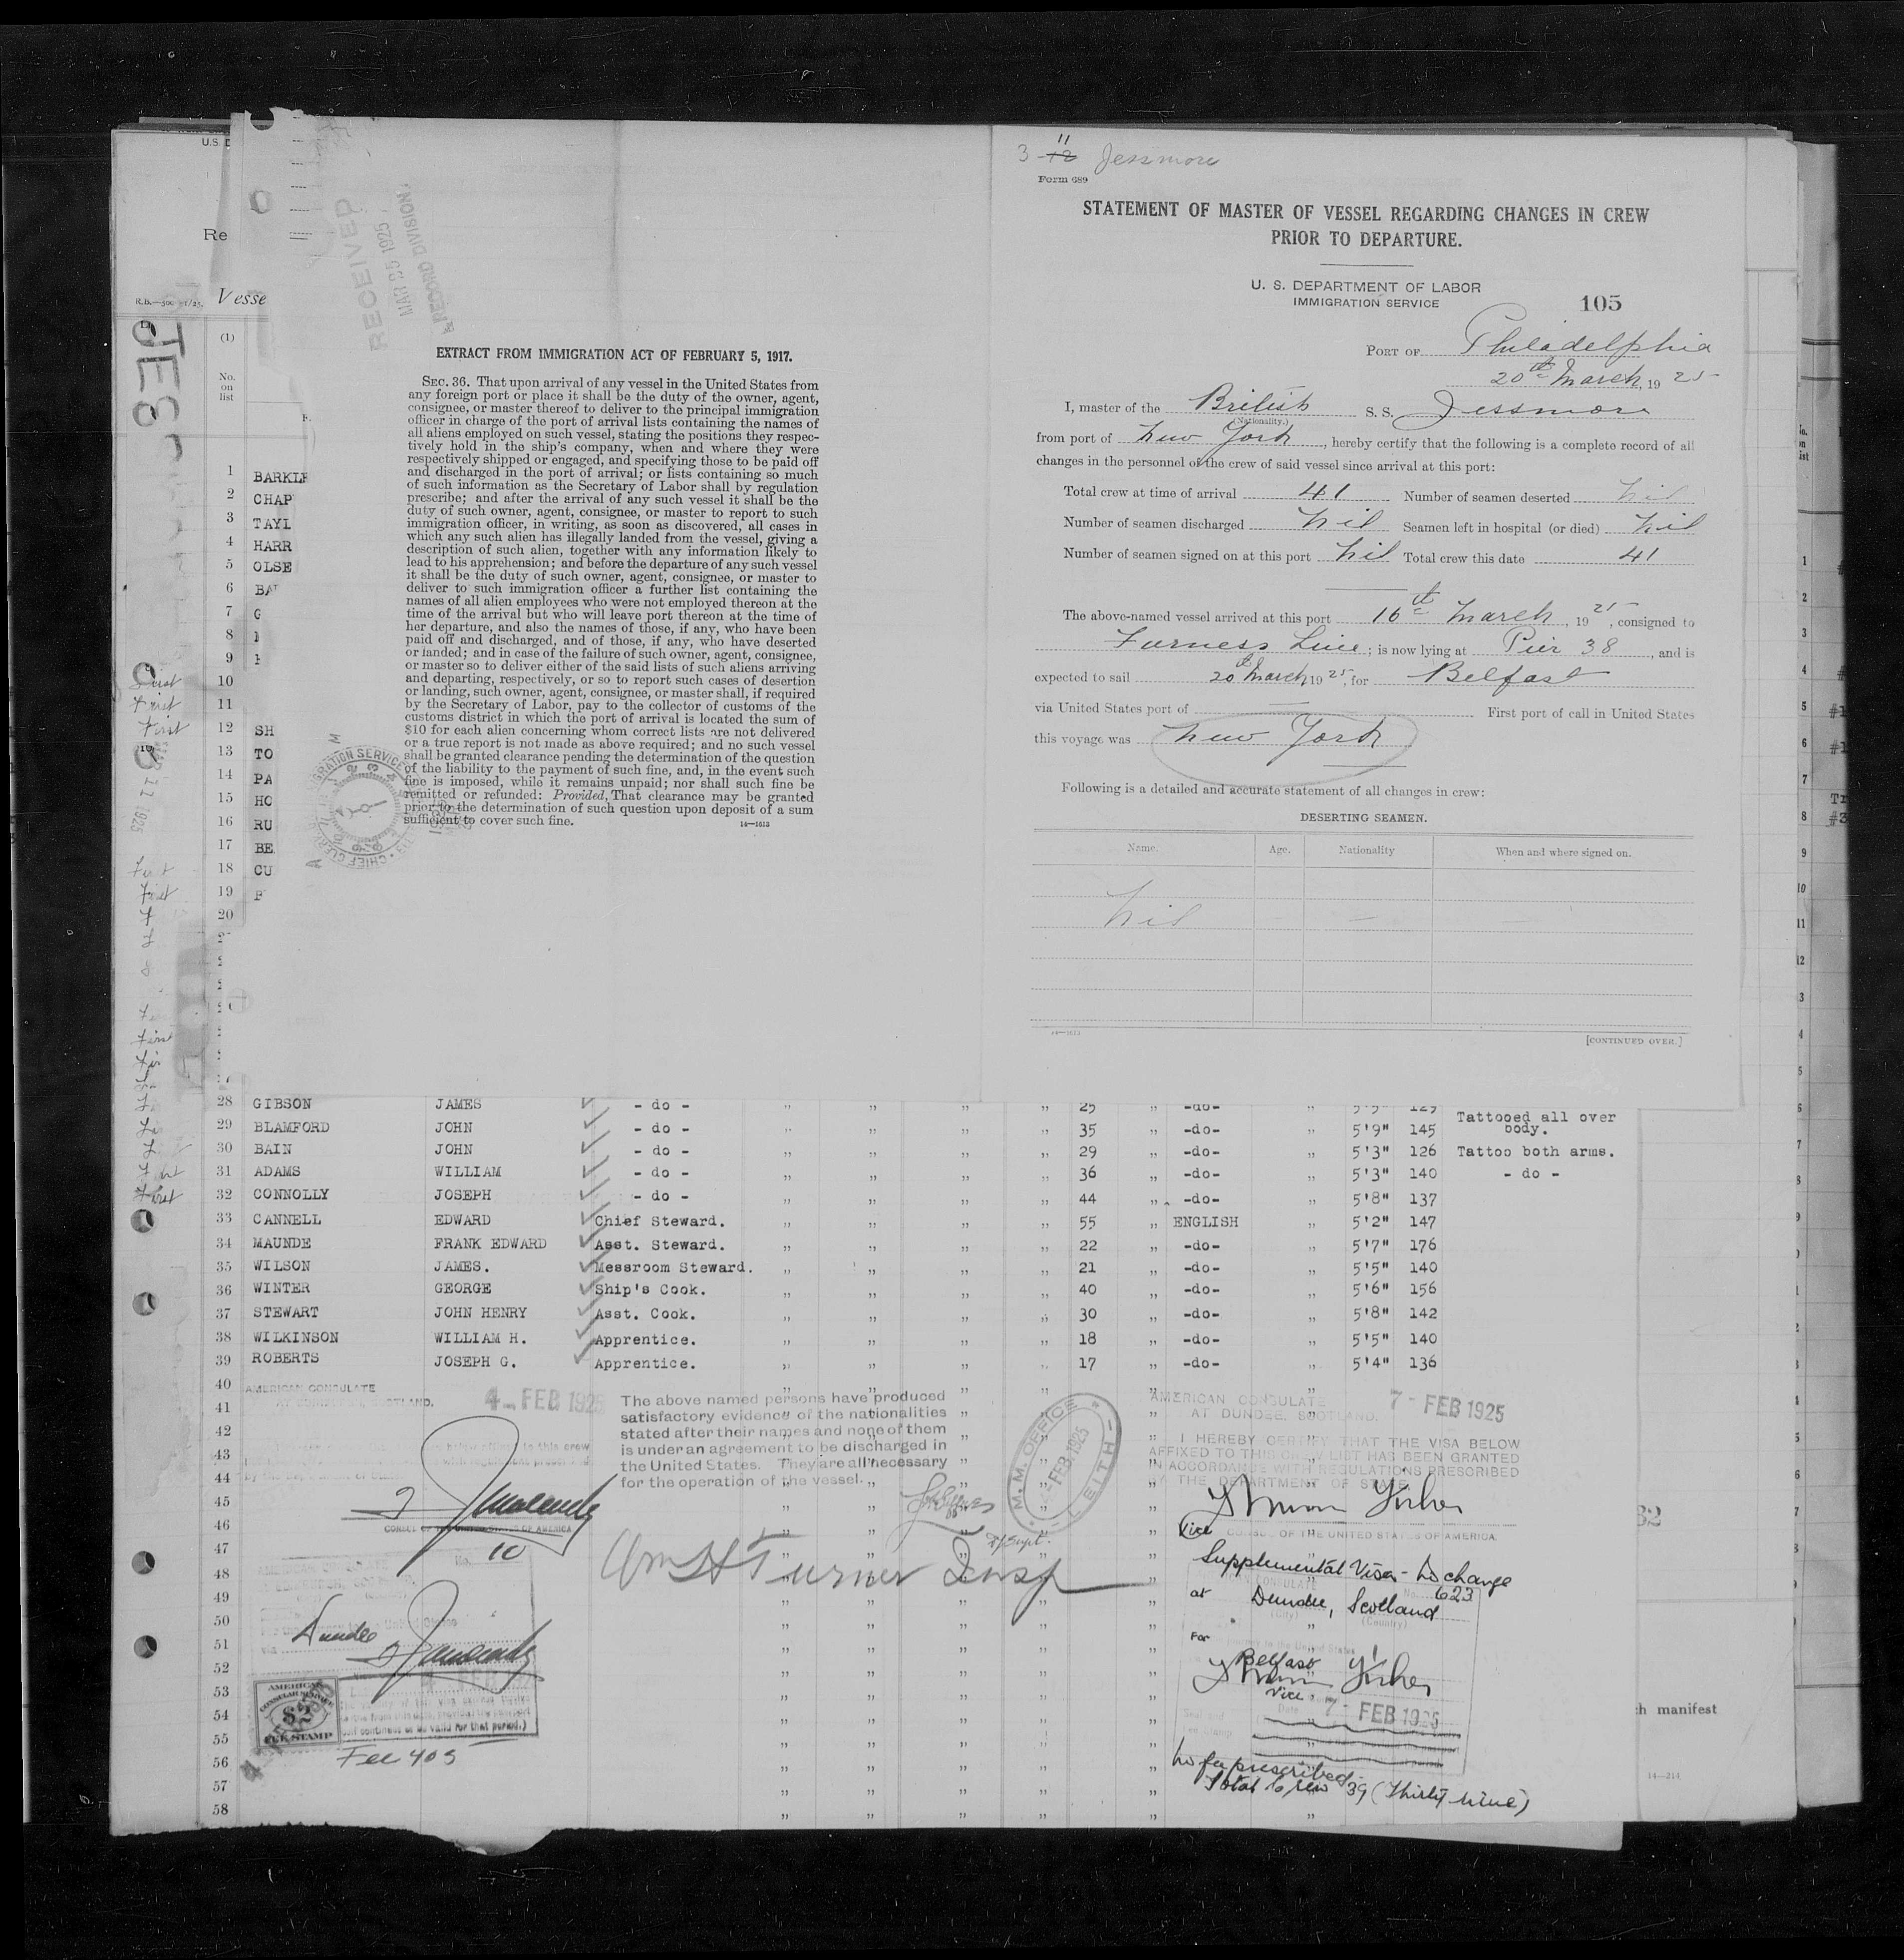 U.S. D
Re
R.B.—500
Vesse
(1)
No.
on
list
JESSMORE
RECEIVED
MAR 25 1925
RECORD DIVISION
EXTRACT FROM IMMIGRATION ACT OF FEBRUARY 5, 1917.
SEC. 36. That upon arrival of any vessel in the United States from
any foreign port or place it shall be the duty of the owner, agent,
consignee, or master thereof to deliver to the principal immigration
officer in charge of the port of arrival lists containing the names of
all aliens employed on such vessel, stating the positions they respec-
tively hold in the ship's company, when and where they were
respectively shipped or engaged, and specifying those to be paid off
and discharged in the port of arrival; or lists containing so much
of such information as the Secretary of Labor shall by regulation
prescribe; and after the arrival of any such vessel it shall be the
duty of such owner, agent, consignee, or master to report to such
immigration officer, in writing, as soon as discovered, all cases in
which any such alien has illegally landed from the vessel, giving a
description of such alien, together with any information likely to
lead to his apprehension; and before the departure of any such vessel
it shall be the duty of such owner, agent, consignee, or master to
deliver to such immigration officer a further list containing the
names of all alien employees who were not employed thereon at the
time of the arrival but who will leave port thereon at the time of
her departure, and also the names of those, if any, who have been
paid off and discharged, and of those, if any, who have deserted
or landed; and in case of the failure of such owner, agent, consignee,
or master so to deliver either of the said lists of such aliens arriving
and departing, respectively, or so to report such cases of desertion
or landing, such owner, agent, consignee, or master shall, if required
by the Secretary of Labor, pay to the collector of customs of the
customs district in which the port of arrival is located the sum of
$10 for each alien concerning whom correct lists are not delivered
or a true report is not made as above required; and no such vessel
shall be granted clearance pending the determination of the question
of the liability to the payment of such fine, and, in the event such
fine is imposed, while it remains unpaid; nor shall such fine be
remitted or refunded: Provided, That clearance may be granted
prior to the determination of such question upon deposit of a sum
sufficient to cover such fine.
14—1613
3-12 11 Jessmore
Form 689
STATEMENT OF MASTER OF VESSEL REGARDING CHANGES IN CREW
PRIOR TO DEPARTURE.
U. S. DEPARTMENT OF LABOR
IMMIGRATION SERVICE
105
PORT OF Philadelphia
20th March, 1925
I, master of the British S. S. Jessmore
(Nationality.)
from port of New York, hereby certify that the following is a complete record of all
changes in the personnel of the crew of said vessel since arrival at this port:
Total crew at time of arrival 41 Number of seamen deserted Nil
Number of seamen discharged Nil Seamen left in hospital (or died) Nil
Number of seamen signed on at this port Nil Total crew this date 41
The above-named vessel arrived at this port 16th March, 1925, consigned to
Furness Line; is now lying at Pier 38, and is
expected to sail 20th March 1925, for Belfast
via United States port of — First port of call in United States
this voyage was New York
Following is a detailed and accurate statement of all changes in crew:
DESERTING SEAMEN.
Name. Age. Nationality When and where signed on.
Nil — —
14—1613
[CONTINUED OVER.]
1 BARKLE
2 CHAP
3 TAYL
4 HARR
5 OLSE
6 BA
7 G
8
9
10
11
12 SH
13 TO
14 PA
15 HO
16 RU
17 BE
18 CU
19
20
28 GIBSON JAMES - do - " " " " 25 " -do- " 5'5" 129
29 BLAMFORD JOHN - do - " " " " 35 " -do- " 5'9" 145 Tattooed all over body.
30 BAIN JOHN - do - " " " " 29 " -do- " 5'3" 126 Tattoo both arms.
31 ADAMS WILLIAM - do - " " " " 36 " -do- " 5'3" 140 - do -
32 CONNOLLY JOSEPH - do - " " " " 44 " -do- " 5'8" 137
33 CANNELL EDWARD Chief Steward. " " " " 55 " ENGLISH " 5'2" 147
34 MAUNDE FRANK EDWARD Asst. Steward. " " " " 22 " -do- " 5'7" 176
35 WILSON JAMES. Messroom Steward. " " " " 21 " -do- " 5'5" 140
36 WINTER GEORGE Ship's Cook. " " " " 40 " -do- " 5'6" 156
37 STEWART JOHN HENRY Asst. Cook. " " " " 30 " -do- " 5'8" 142
38 WILKINSON WILLIAM H. Apprentice. " " " " 18 " -do- " 5'5" 140
39 ROBERTS JOSEPH G. Apprentice. " " " " 17 " -do- " 5'4" 136
40
41
42
43
44
45
46
47
48
49
50
51
52
53
54
55
56
57
58
AMERICAN CONSULATE
AT EDINBURGH, SCOTLAND.
4 - FEB 1925
CONSUL OF THE UNITED STATES OF AMERICA
10
Dundee
AMERICAN
CONSULAR SERVICE
$2
FEE STAMP
Fee 40s
The above named persons have produced
satisfactory evidence of the nationalities
stated after their names and none of them
is under an agreement to be discharged in
the United States. They are all necessary
for the operation of the vessel.
M.M. OFFICE
FEB. 1925
LEITH
D/Supt.
Wm H Turner Insp
AMERICAN CONSULATE
AT DUNDEE, SCOTLAND.
7 - FEB 1925
I HEREBY CERTIFY THAT THE VISA BELOW
AFFIXED TO THIS CREW LIST HAS BEEN GRANTED
IN ACCORDANCE WITH REGULATIONS PRESCRIBED
BY THE DEPARTMENT OF STATE.
Vice CONSUL OF THE UNITED STATES OF AMERICA.
Supplemental Visa - No change
No. 623
at Dundee, Scotland
(City) (Country)
For
Belfast
Vice
7 - FEB 1925
No fee prescribed.
Total Crew 39 (Thirty nine)
h manifest
14—214